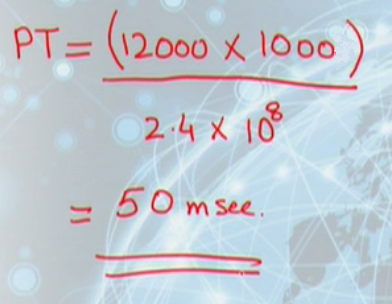 PT = (12000 x 1000)
2.4 x 10⁸
= 50 msec.